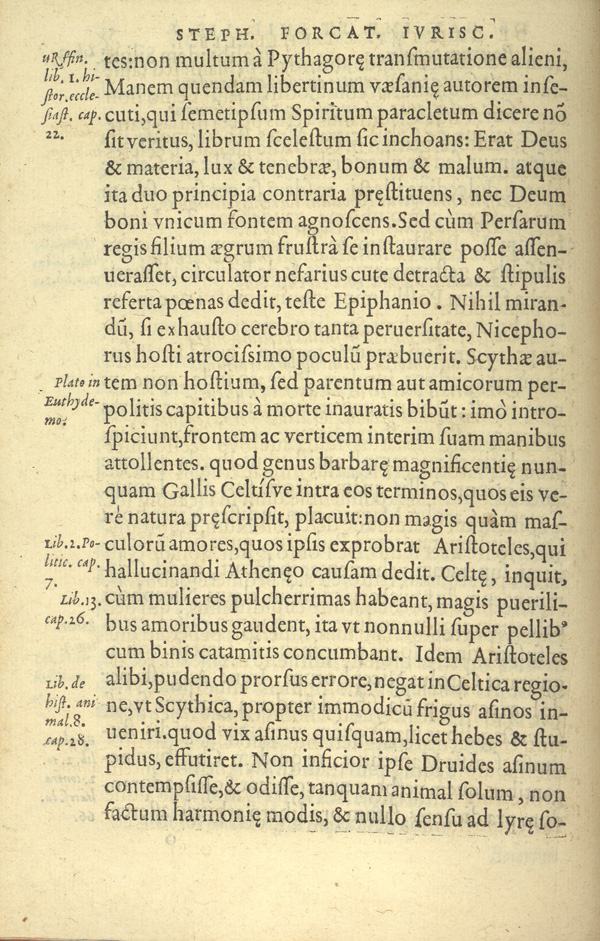 STEPH. FORCAT. IVRISC.
uRffin.
lib. 1. hi-
ſtor.eccle-
ſiaſt. cap.
22.
tes:non multum à Pythagorę tranſmutatione alieni,
Manem quendam libertinum væſanię autorem inſe-
cuti,qui ſemetipſum Spiritum paracletum dicere nō
ſit veritus, librum ſceleſtum ſic inchoans: Erat Deus
& materia, lux & tenebræ, bonum & malum. atque
ita duo principia contraria pręſtituens, nec Deum
boni vnicum fontem agnoſcens.Sed cùm Perſarum
regis filium ægrum fruſtrà ſe inſtaurare poſſe aſſen-
ueraſſet, circulator nefarius cute detracta & ſtipulis
referta pœnas dedit, teſte Epiphanio. Nihil miran-
dū, ſi exhauſto cerebro tanta peruerſitate, Nicepho-
rus hoſti atrociſsimo poculū præbuerit. Scythæ au-
Plato in
Euthyde-
mo.
tem non hoſtium, ſed parentum aut amicorum per-
politis capitibus à morte inauratis bibūt: imò intro-
ſpiciunt,frontem ac verticem interim ſuam manibus
attollentes. quod genus barbarę magnificentię nun-
quam Gallis Celtíſve intra eos terminos,quos eis ve-
rè natura pręſcripſit, placuit:non magis quàm maſ-
Lib.2.Po-
litic. cap.
7.
culorū amores,quos ipſis exprobrat Ariſtoteles,qui
hallucinandi Athenęo cauſam dedit. Celtę, inquit,
Lib.13.
cap.26.
cùm mulieres pulcherrimas habeant, magis puerili-
bus amoribus gaudent, ita vt nonnulli ſuper pellibꝰ
cum binis catamitis concumbant. Idem Ariſtoteles
Lib. de
hiſt. ani
mal.8.
cap.28.
alibi,pudendo prorſus errore,negat in Celtica regio-
ne,vt Scythica, propter immodicū frigus aſinos in-
ueniri.quod vix aſinus quiſquam,licet hebes & ſtu-
pidus, effutiret. Non inficior ipſe Druides aſinum
contempſiſſe,& odiſſe, tanquam animal ſolum, non
factum harmonię modis, & nullo ſenſu ad lyrę ſo-